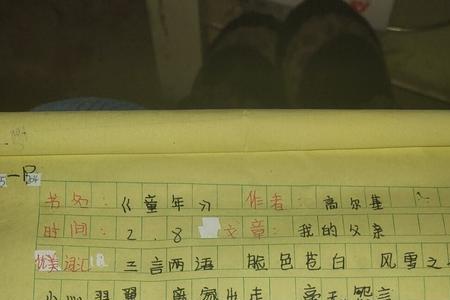 书名：《童年》 作者：高尔基
时间：2.8 文章：我的父亲
优美词汇 三言两语 脸色苍白 风雪之
小心翼翼 离家出走 怨天怨言